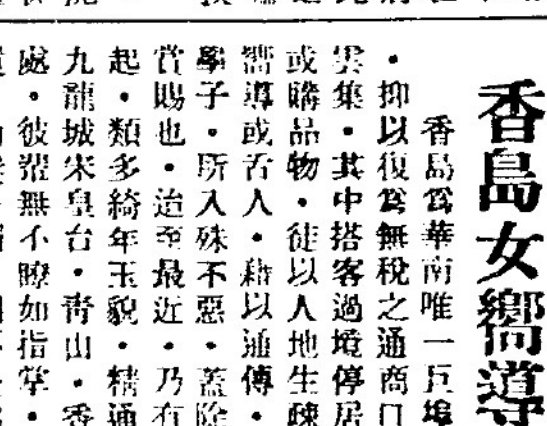 香島女嚮導
香島爲華南唯一巨埠
・抑以復爲無稅之通商口
雲集・其中搭客過境停居
或購品物・徒以人地生疎
嚮導或舌人・藉以通傳・
學子・所入殊不惡・蓋除
賞賜也・迨至最近・乃有
起・類多綺年玉貌・精通
九龍城宋皇台・靑山・香
處・彼輩無不瞭如指掌・